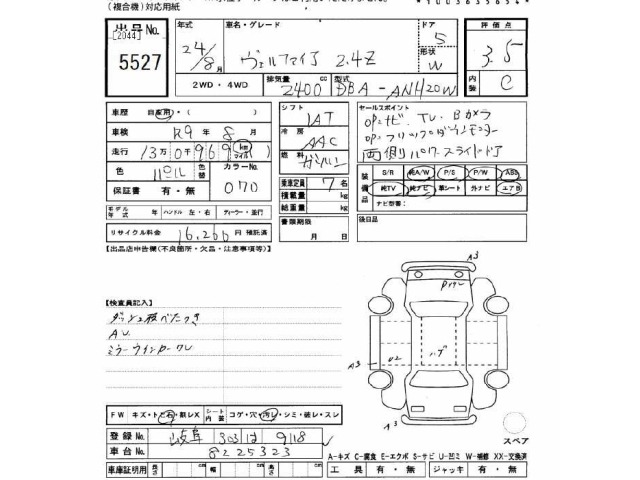 (複合機)対応用紙
出品No.
[2044]
5527
年式 車名・グレード ドア 評価点
24/8月 ヴェルファイア 2.4Z 5 3.5
形状 W
2WD・4WD 排気量 2400 cc 型式 DBA-ANH20W 内装 C
車歴 自家用・( ) シフト IAT セールスポイント
車検 R9年 8月 冷房 AAC OP.ナビ.TV.Bカメラ
走行 13万0千969 (km マイル) 燃料 ガソリン OP.フリップダウンモニター
両側パワースライドドア
色 パール 色替 カラーNo. 070
保証書 有・無
乗車定員 7名
積載量 kg
総重量 kg
装備品 S/R 純A/W P/S P/W ABS
純TV 純ナビ 革シート 外ナビ エアB
ナビ型番( )
モデル年式 年 ハンドル 左・右 ディーラー・並行
書類期限 月 日
後日品
リサイクル料金 16,260 円 預託済
【出品店申告欄(不良箇所・欠品・注意事項等)】
【検査員記入】
ダッシュ板べたつき
AU
ミラーウインカーワレ
A3
A3
U2
ハゲ
A3
FW キズ・トビ石・割レX シート内装 コゲ・穴・汚レ・シミ・破レ・スレ
登録No. 岐阜 303 は 9118
車台No. 8225323
スペア
A-キズ C-腐食 E-エクボ S-サビ U-凹ミ W-補修 XX-交換済
車庫証明用 長さ cm 幅 cm 高さ cm 工具 有・無 ジャッキ 有・無